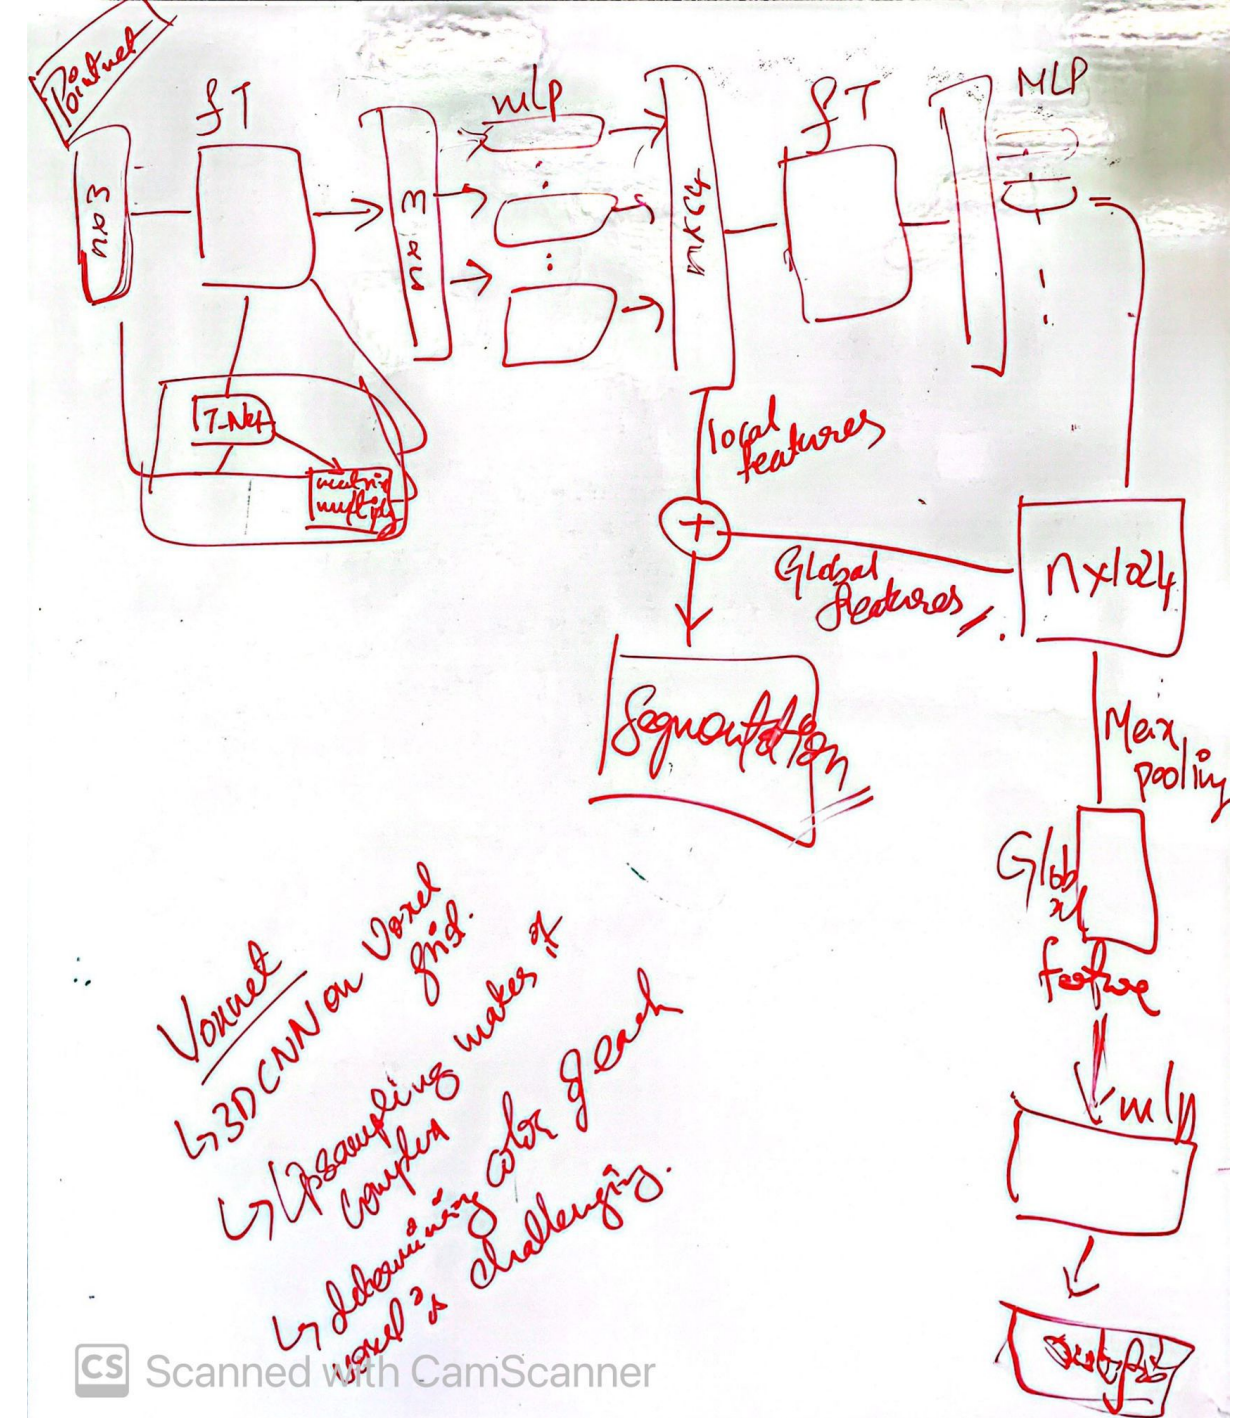 Pointnet
fT
mlp
fT
MLP
nx3
nx3
nx64
T-Net
matrix
multiply
local
features
+
Global
features
nx1024
Segmentation
Max
pooling
Global
feature
mlp
output
Voxnet
↳ 3D CNN on Voxel
grid.
↳ Upsampling makes it
complex
↳ determining color of each
voxel is challenging.
CS Scanned with CamScanner